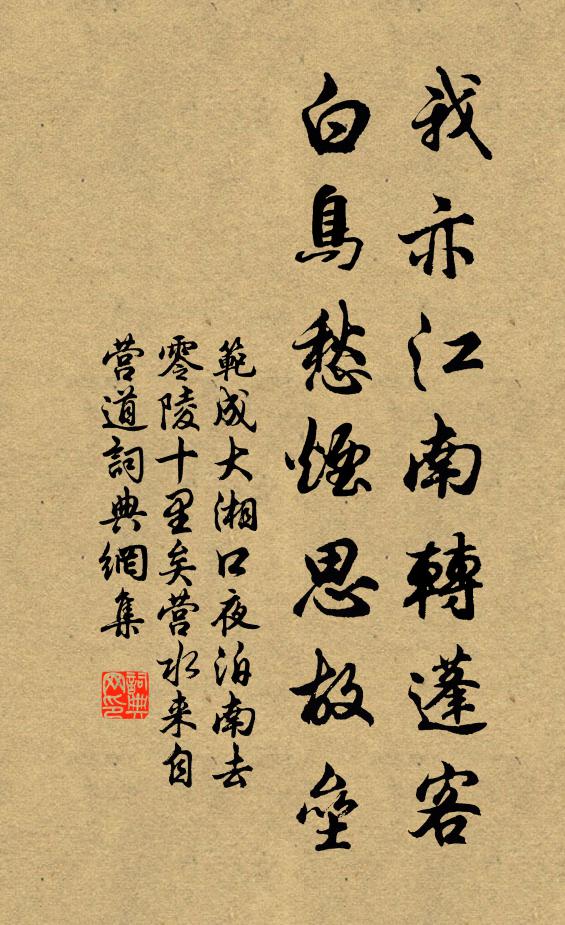 我亦江南轉蓬客
白鳥愁煙思故壘
範成大湘口夜泊南去
零陵十里矣營水来自
营道詞典網集
詞典
网印